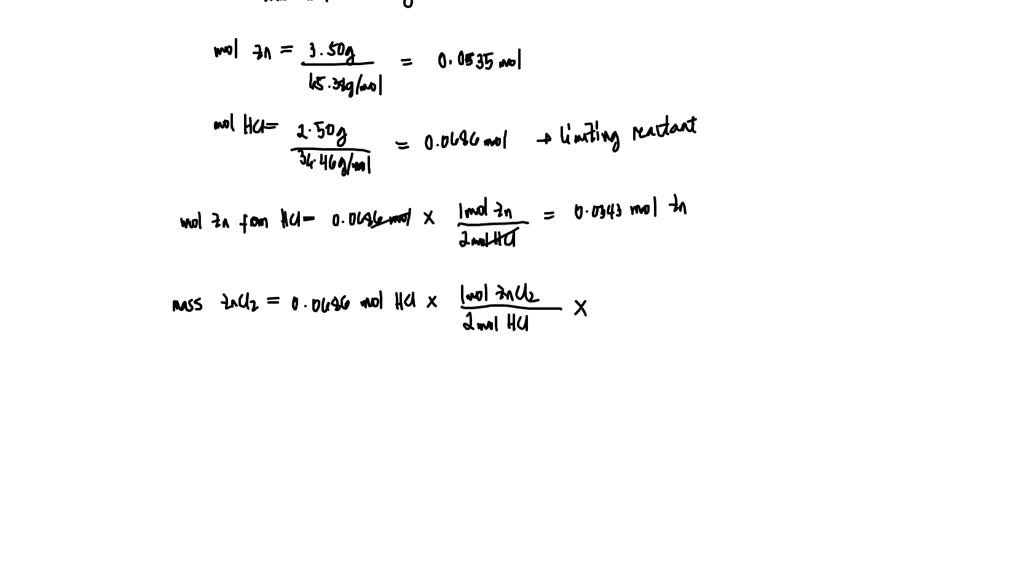 mol Zn = 3.50g / 65.38g/mol = 0.0535 mol
mol HCl = 2.50g / 36.46g/mol = 0.0686 mol → limiting reactant
mol Zn from HCl = 0.0686 mol × 1mol Zn / 2mol HCl = 0.0343 mol Zn
mass ZnCl2 = 0.0686 mol HCl × 1mol ZnCl2 / 2mol HCl ×